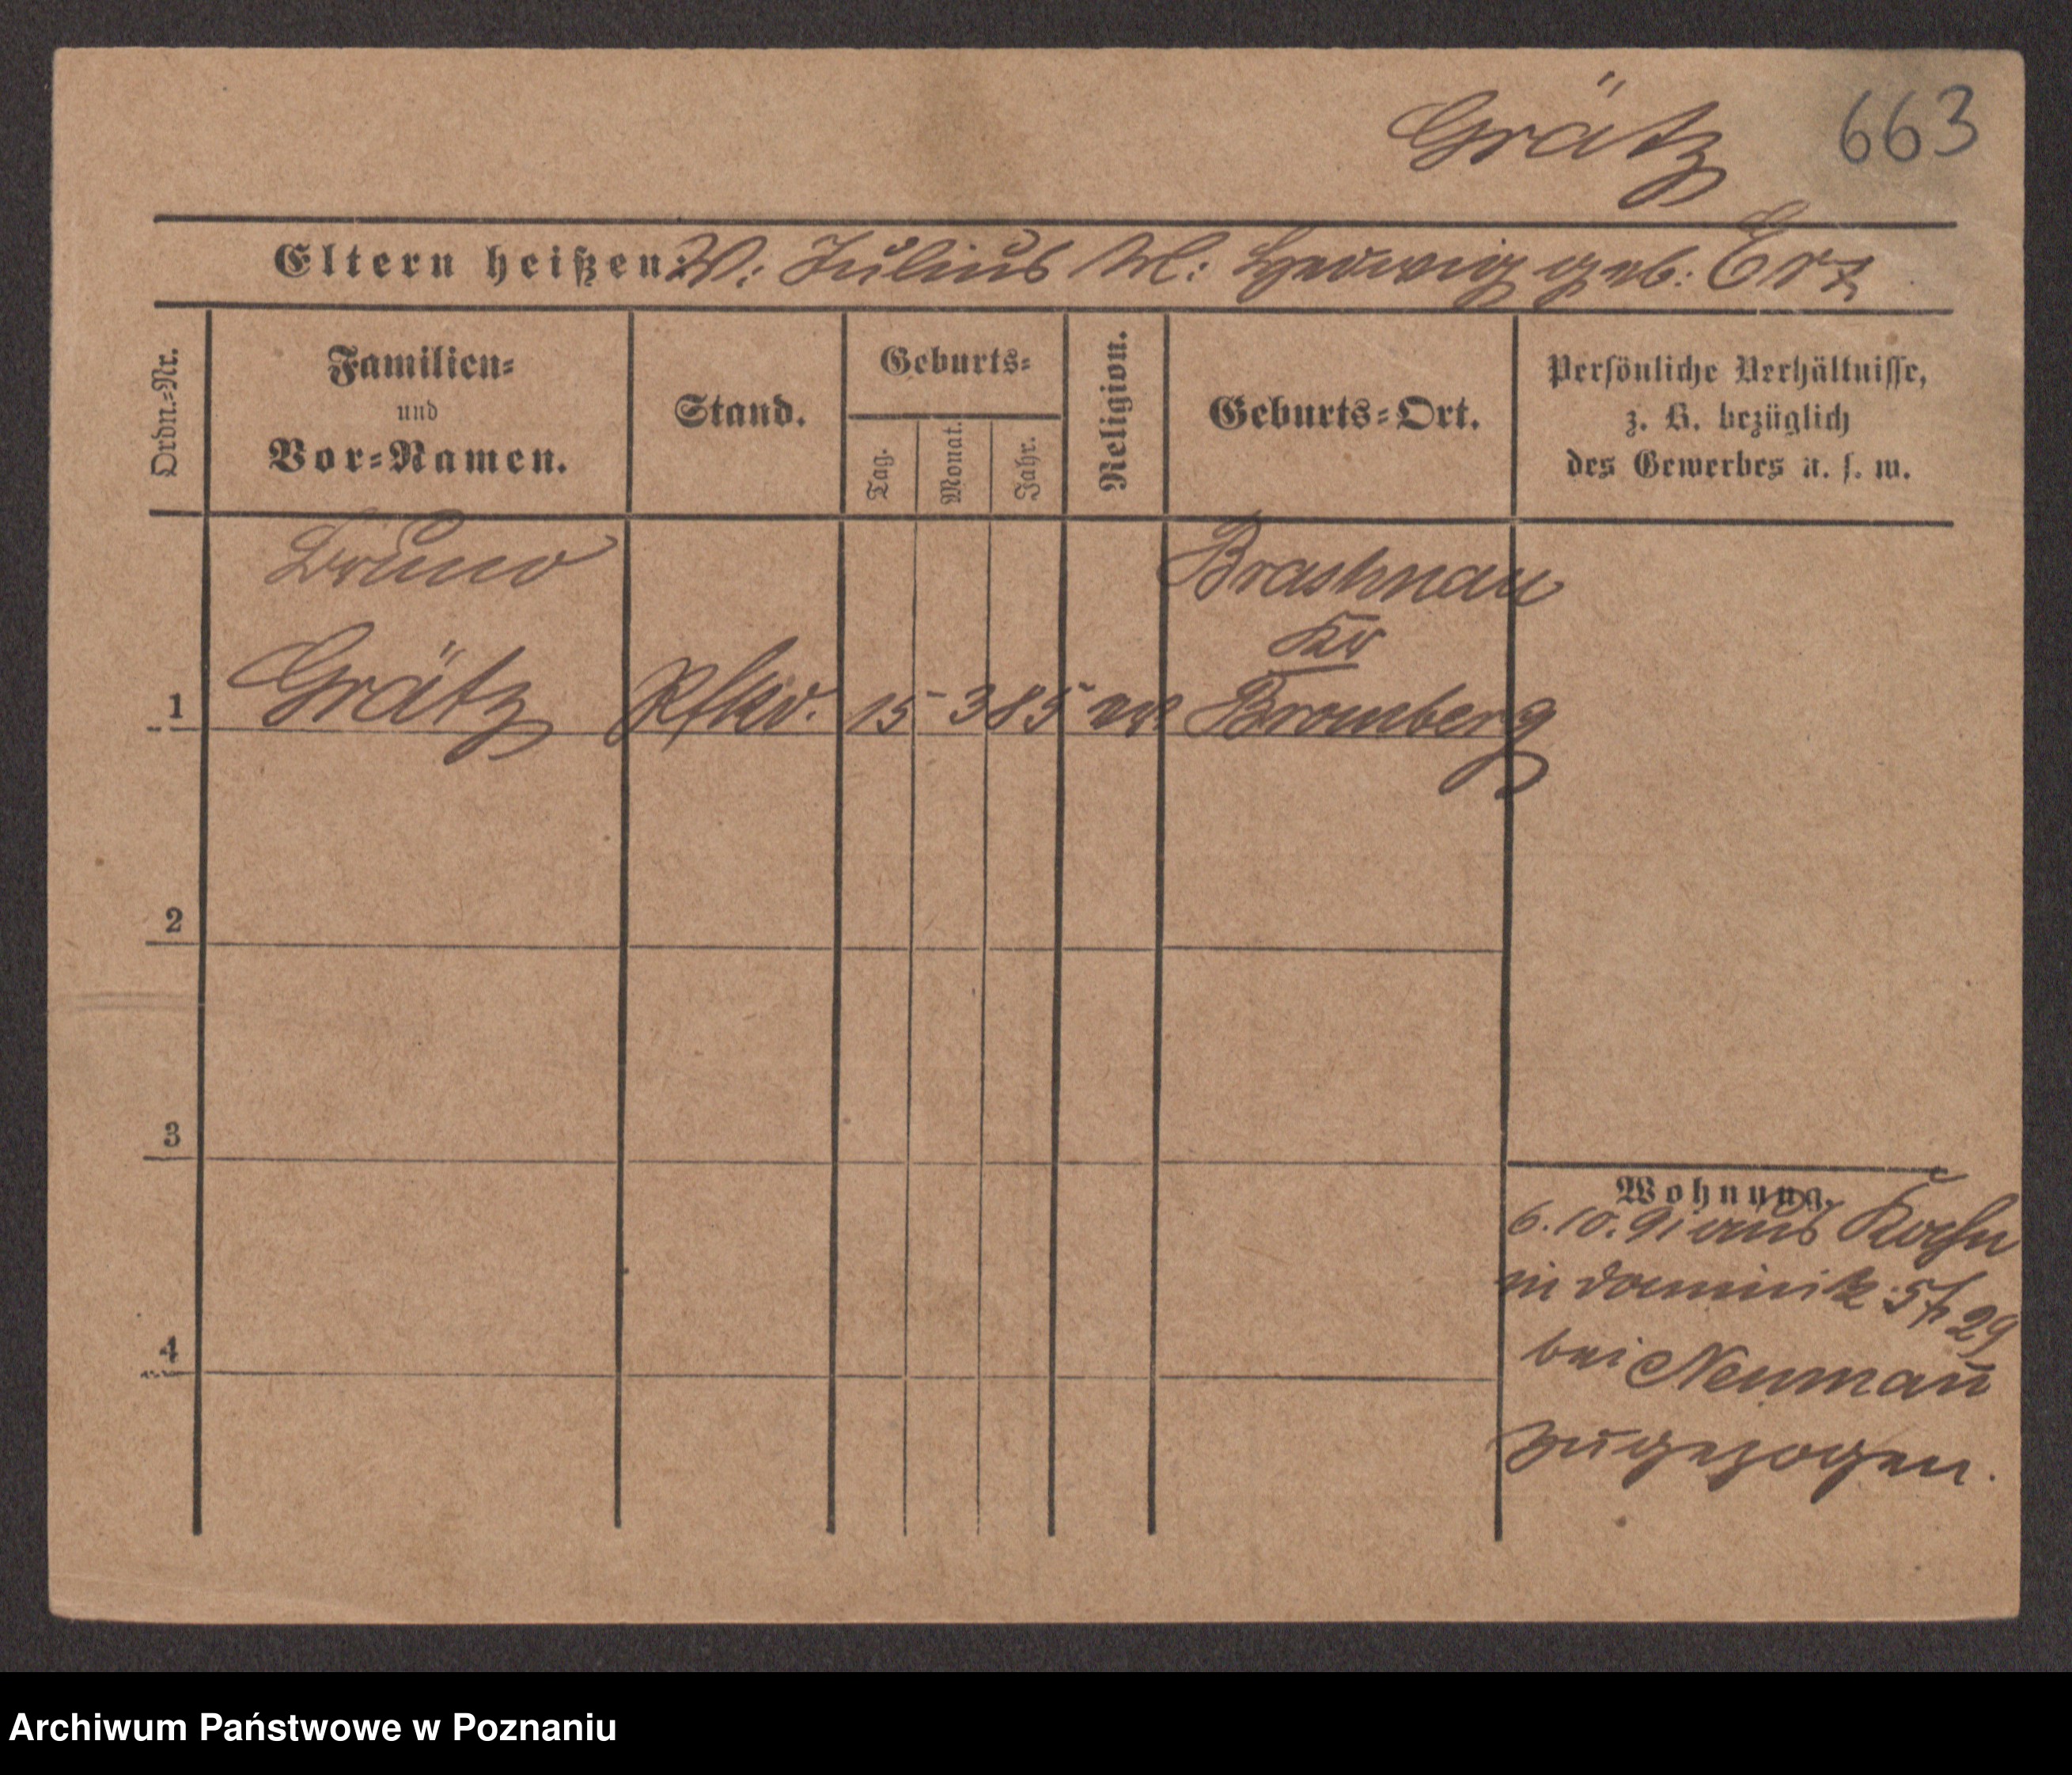 Grätz 663
Eltern heißen: V: Julius M: Hedwig geb: Erz
Ordn.-Nr.
Familien-
und
Vor-Namen.
Stand.
Geburts-
Tag. Monat. Jahr.
Religion.
Geburts-Ort.
Persönliche Verhältnisse,
z. B. bezüglich
des Gewerbes u. s. w.
Bruno
Grätz
1 15 3 85
Kr
Bromberg
2
3
4
Wohnung.
6.10.91 aus
in Dominik. St 29
bei Neumañ
zugezogen.
Archiwum Państwowe w Poznaniu